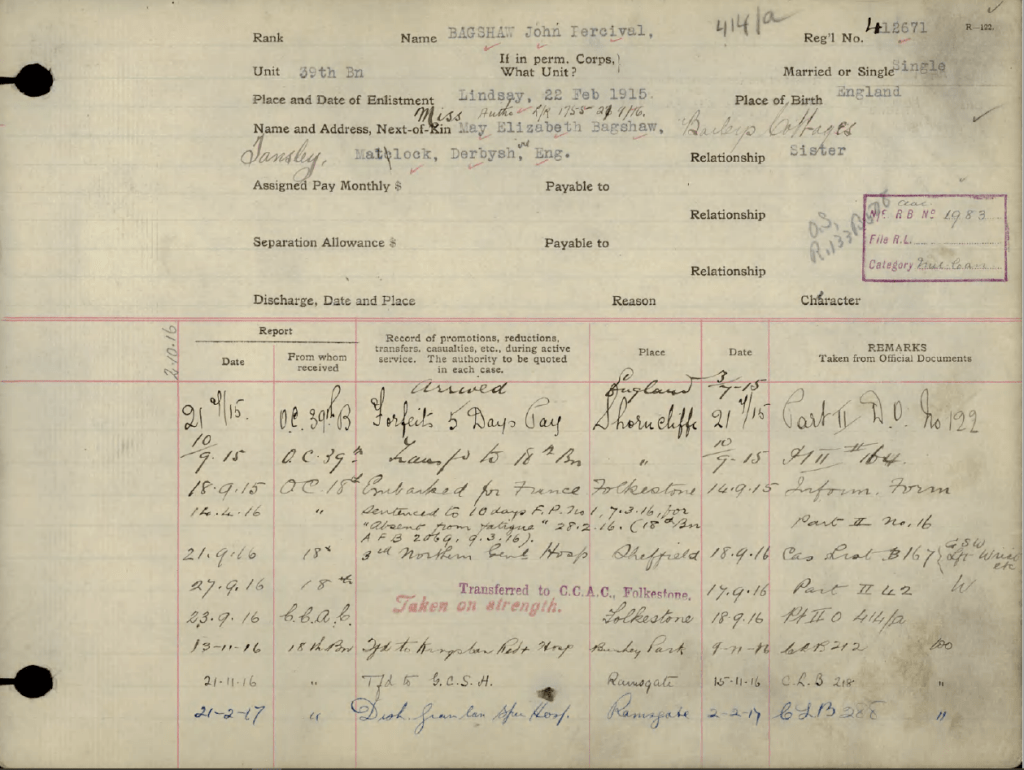 414/a
Rank Name BAGSHAW John Percival, Reg'l No. 412671 R-122.
Unit 39th Bn If in perm. Corps, What Unit? Married or Single Single
Place and Date of Enlistment Lindsay, 22 Feb 1915. Place of Birth England
Miss Autho L/R 1758 9/16.
Name and Address, Next-of-Kin May Elizabeth Bagshaw, Baileys Cottages
Tansley, Matlock, Derbysh, Eng. Relationship Sister
Assigned Pay Monthly $ Payable to
Relationship
R B No 1983
Separation Allowance $ Payable to
File R.L.
Relationship
Category
Discharge, Date and Place Reason Character
2-10-16
Report
Date
From whom received
Record of promotions, reductions, transfers, casualties, etc., during active service. The authority to be quoted in each case.
Place
Date
REMARKS
Taken from Official Documents
Arrived England 3/7-15
21 7/15. O.C. 39th B Forfeits 5 Days Pay Shorncliffe 21 7/15 Part II D.O. No 122
10/9.15 O.C. 39th Transf'd to 18th Bn " 10/9-15 Pt II # 164.
18.9.15 O.C. 18th Embarked for France Folkestone 14.9.15 Inform. Form
14.4.16 " Sentenced to 10 days F.P. No 1, 7.3.16, for
"Absent from fatigue" 28.2.16. (18th Bn Part II No. 16
A F B 2069, 9.3.16).
21.9.16 18th 3rd Northern Genl Hosp Sheffield 18.9.16 Cas List B167 G S W Lft Wrist etc
27.9.16 18th Transferred to C.C.A.C., Folkestone, 17.9.16 Part II 42 W
Taken on strength.
23.9.16 C.C.A.C. Folkestone 18.9.16 Pt II O 414/a
13-11-16 18th Bn Tfd to Kingston Red + Hosp Bushey Park 9-11-16 212 do
21-11-16 " Tfd to G.C.S.H. Ramsgate 15-11-16 C.L.B 218 "
21-2-17 " Disch. Granville Spec Hosp. Ramsgate 2-2-17 C L B 288 "